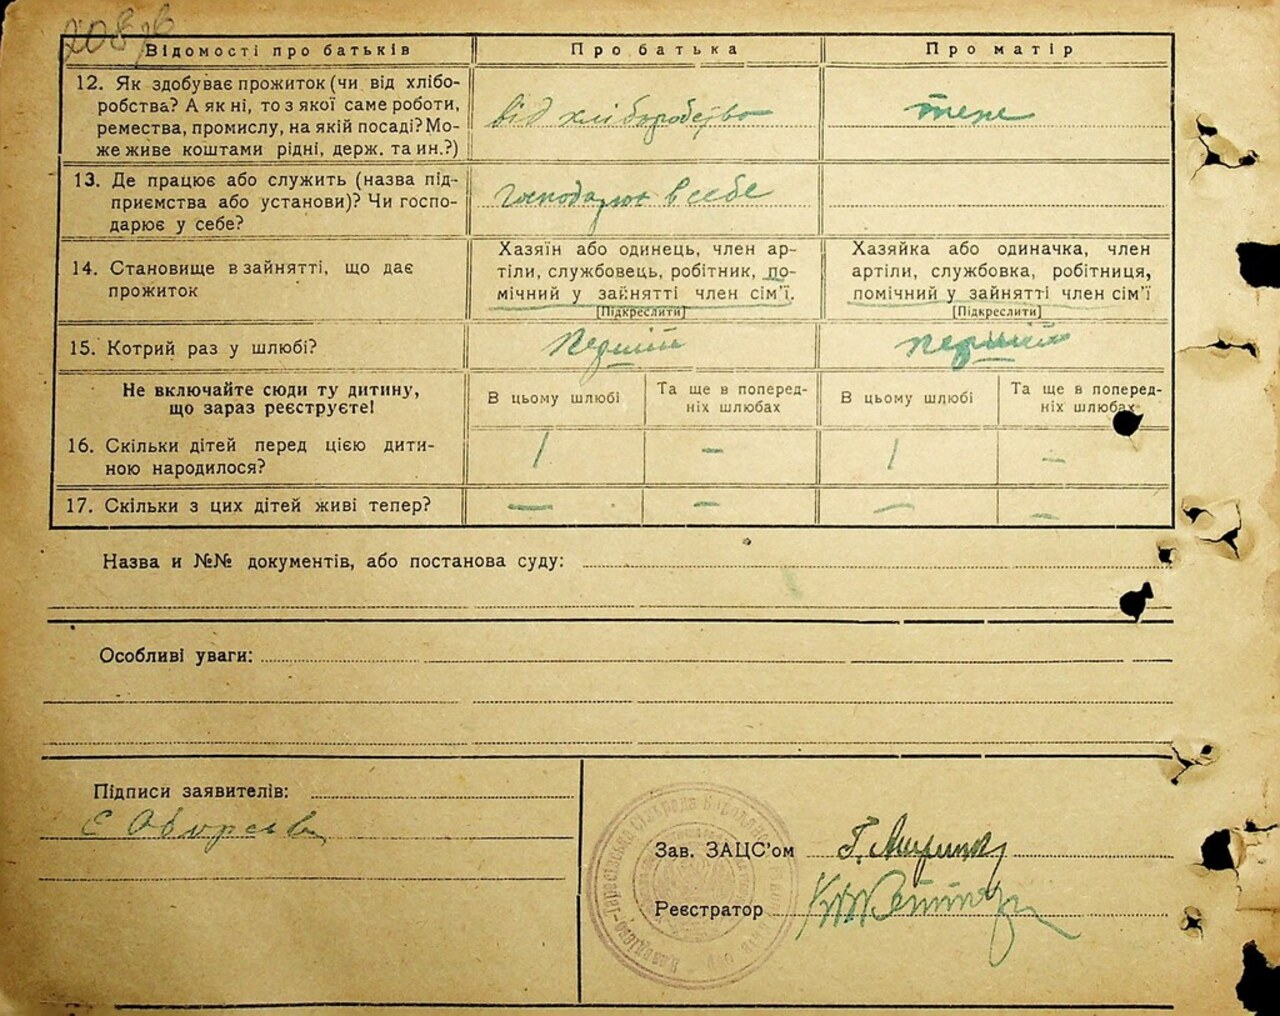 Відомості про батьків
Про батька
Про матір
12. Як здобуває прожиток (чи від хлібо-
робства? А як ні, то з якої саме роботи,
ремества, промислу, на якій посаді? Мо-
же живе коштами рідні, держ. та ин.?)
від хліборобства
теж
13. Де працює або служить (назва під-
приємства або установи)? Чи госпо-
дарює у себе?
Господарює в себе
14. Становище в зайнятті, що дає
прожиток
Хазяїн або одинець, член ар-
тіли, службовець, робітник, по-
мічний у зайнятті член сім'ї.
[Підкреслити]
Хазяйка або одиначка, член
артіли, службовка, робітниця,
помічний у зайнятті член сім'ї
[Підкреслити]
15. Котрий раз у шлюбі?
Перший
перший
Не включайте сюди ту дитину,
що зараз реєструєте!
В цьому шлюбі
Та ще в поперед-
ніх шлюбах
В цьому шлюбі
Та ще в поперед-
ніх шлюбах
16. Скільки дітей перед цією дити-
ною народилося?
1 — 1 —
17. Скільки з цих дітей живі тепер?
— — — —
Назва и №№ документів, або постанова суду:
Особливі уваги:
Підписи заявителів:
Зав. ЗАЦС'ом
Реєстратор